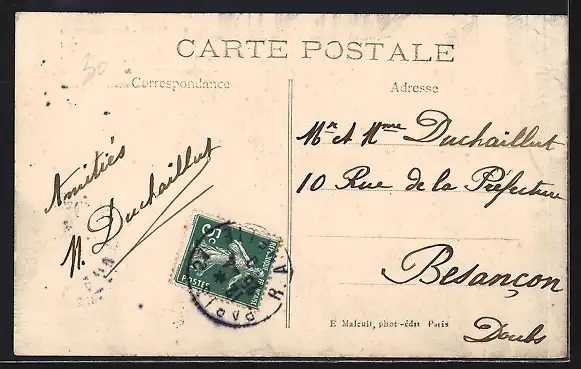 CARTE POSTALE
30
Correspondance
Adresse
Amitiés
N. Duchaillut
Mr et Mme Duchaillut
10 Rue de la Préfecture
Besançon
Doubs
5c
POSTES
PARIS
R. A
E Malcuit, phot-édit Paris